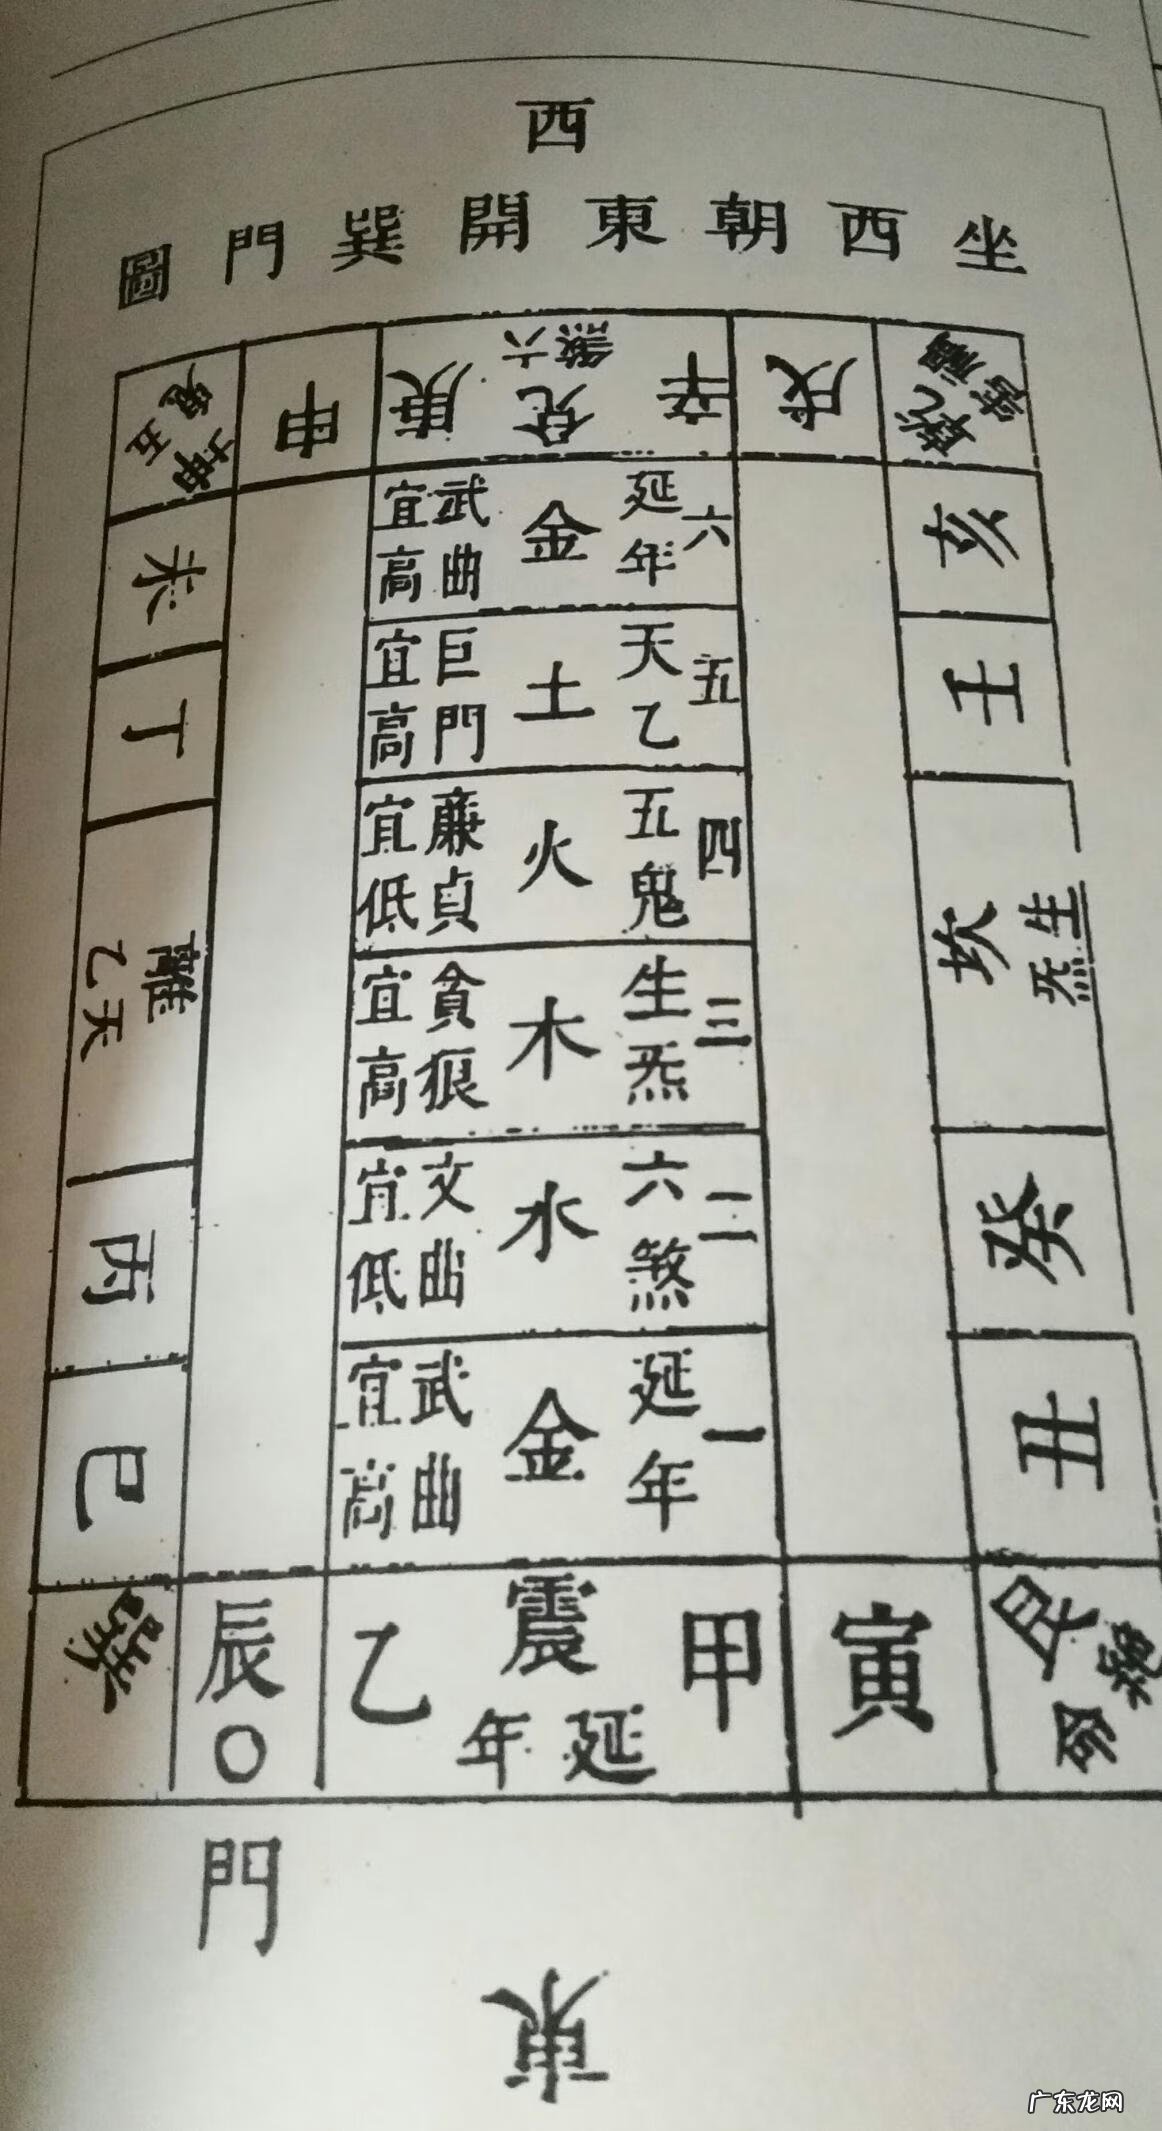 西
坐西朝東開巽門圖
乾 禍害
戌
辛 兌 六煞 庚
申
坤 五鬼
亥
壬
坎 生炁
癸
丑
艮 絕命
未
丁
離 天乙
丙
巳
巽
六 延年 金 武曲 宜高
五 天乙 土 巨門 宜高
四 五鬼 火 廉貞 宜低
三 生炁 木 貪狼 宜高
二 六煞 水 文曲 宜低
一 延年 金 武曲 宜高
寅
甲 震 乙
延年
辰
〇
門
東
广东龙网